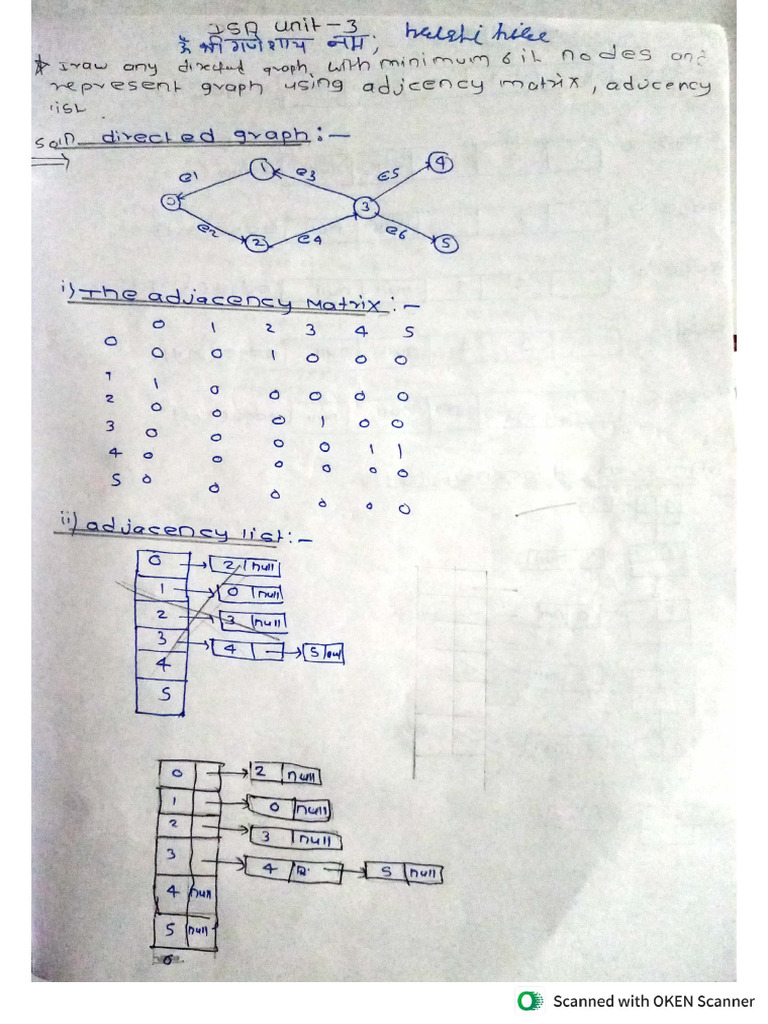 DSA unit - 3
ॐ श्री गणेशाय नमः
* Draw any directed graph, with minimum 6 nodes and
represent graph using adjcency matrix, adjcency
list.
Soln directed graph :-
e1 1 e3 e5 4
0 3
e2 2 e4 e6 5
i) The adjacency Matrix :-
0 1 2 3 4 5
0 0 0 1 0 0 0
1 1 0 0 0 0 0
2 0 0 0 1 0 0
3 0 0 0 0 1 1
4 0 0 0 0 0 0
5 0 0 0 0 0 0
ii) adjacency list :-
0 2 null
1 0 null
2 3 null
3 4 5 null
4
5
0 2 null
1 0 null
2 3 null
3 4 5 null
4 null
5 null
Scanned with OKEN Scanner